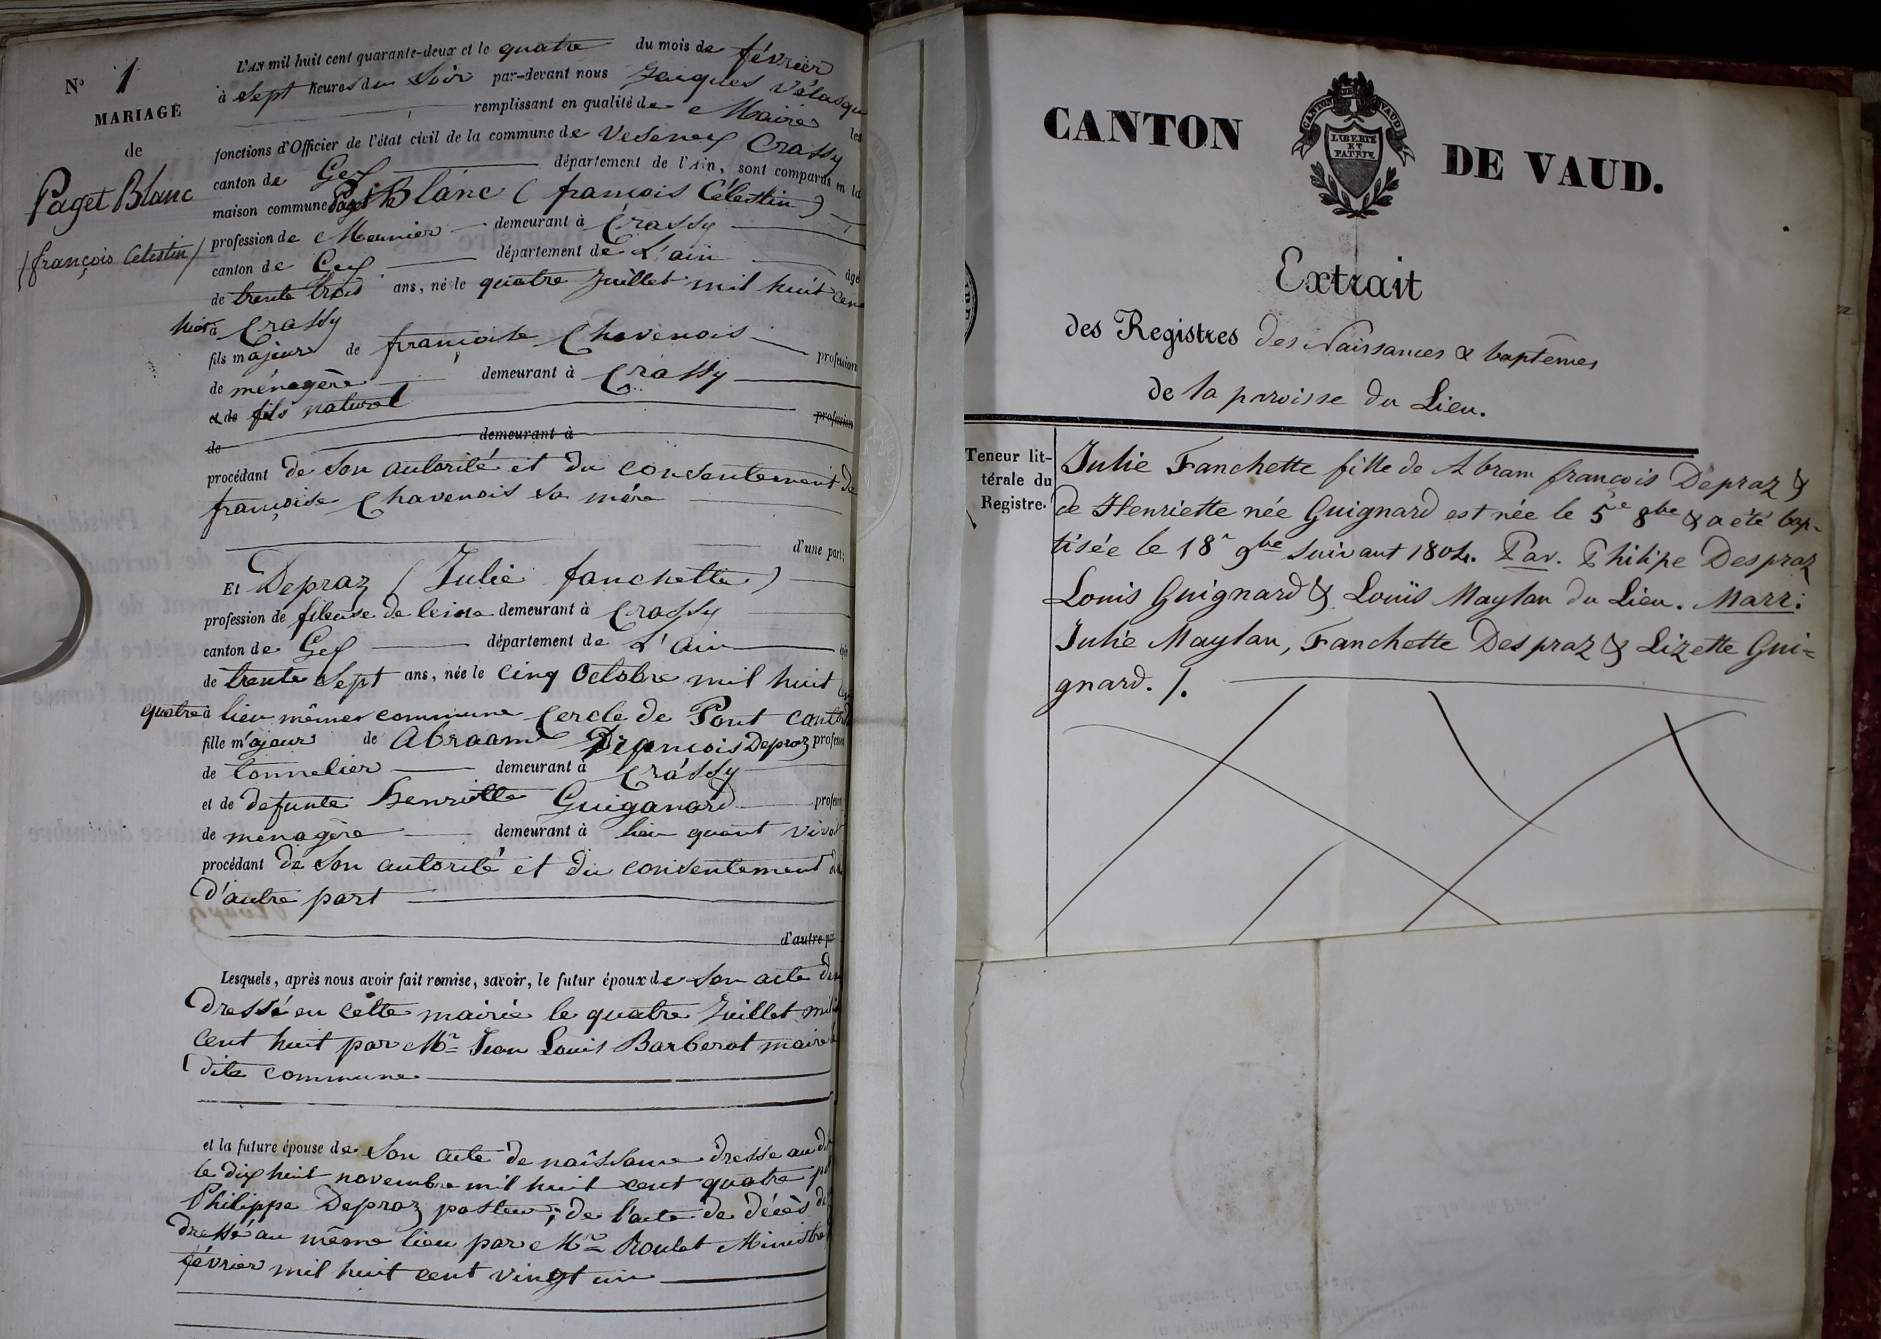 N° 1
MARIAGE
de
Paget Blanc
(françois Celestin)
L'AN mil huit cent quarante-deux et le quatre du mois de février
à sept heures du Soir par-devant nous Jacques
remplissant en qualité de Maire les
fonctions d'Officier de l'état civil de la commune de Vesenex Crassy
canton de Gex département de l'Ain, sont comparus en la
maison commune Paget Blanc (francois Célestin)
profession de Meunier demeurant à Crassy
canton de Gex département de L'ain âgé
de trente trois ans, né le quatre Juillet mil huit cent
huit à Crassy
fils majeur de francoise Chavenois profession
de ménagère demeurant à Crassy
et de fils naturel profession
de demeurant à
procédant de Son autorité et du consentement de
françoise Chavenois sa mère
d'une part;
Et Depraz (Julie fanchette)
profession de fileuse de leine demeurant à Crassy
canton de Gex département de L'Ain
de trente Sept ans, née le cinq Octobre mil huit
quatre à lieu mêmes commune Cercle de Pont
fille majeur de Abraam François Depraz
de tonnelier demeurant à Crassy
et de defunte Henriette Guiganard
de menagère demeurant à lieu quant vivait
procédant de Son autorité et du consentement
d'autre part
d'autre
Lesquels, après nous avoir fait remise, savoir, le futur époux de Son acte
Dressé en cette mairie le quatre Juillet
cent huit par Mr Jean Louis Barberat maire
dite commune
et la future épouse de Son acte de naissance dressé au
le dix huit novembre mil huit cent quatre
Philippe Depraz pasteur; de l'acte de décès
dressé au même lieu par Mr Roulet Ministre
février mil huit cent vingt un
CANTON DE VAUD.
CANTON DE VAUD
LIBERTE
ET
PATRIE
Extrait
des Registres des Naissances & baptêmes
de la paroisse du Lieu.
Teneur lit-
térale du
Registre.
Julie Fanchette fille de Abram françois Depraz &
de Henriette née Guignard est née le 5e 8bre & a été bap-
tisée le 18e 9bre suivant 1804. Par. Philipe Despraz
Louis Guignard & Louïs Maylan du Lieu. Marr:
Julie Maylan, Fanchette Despraz & Lizette Gui=
gnard. /.